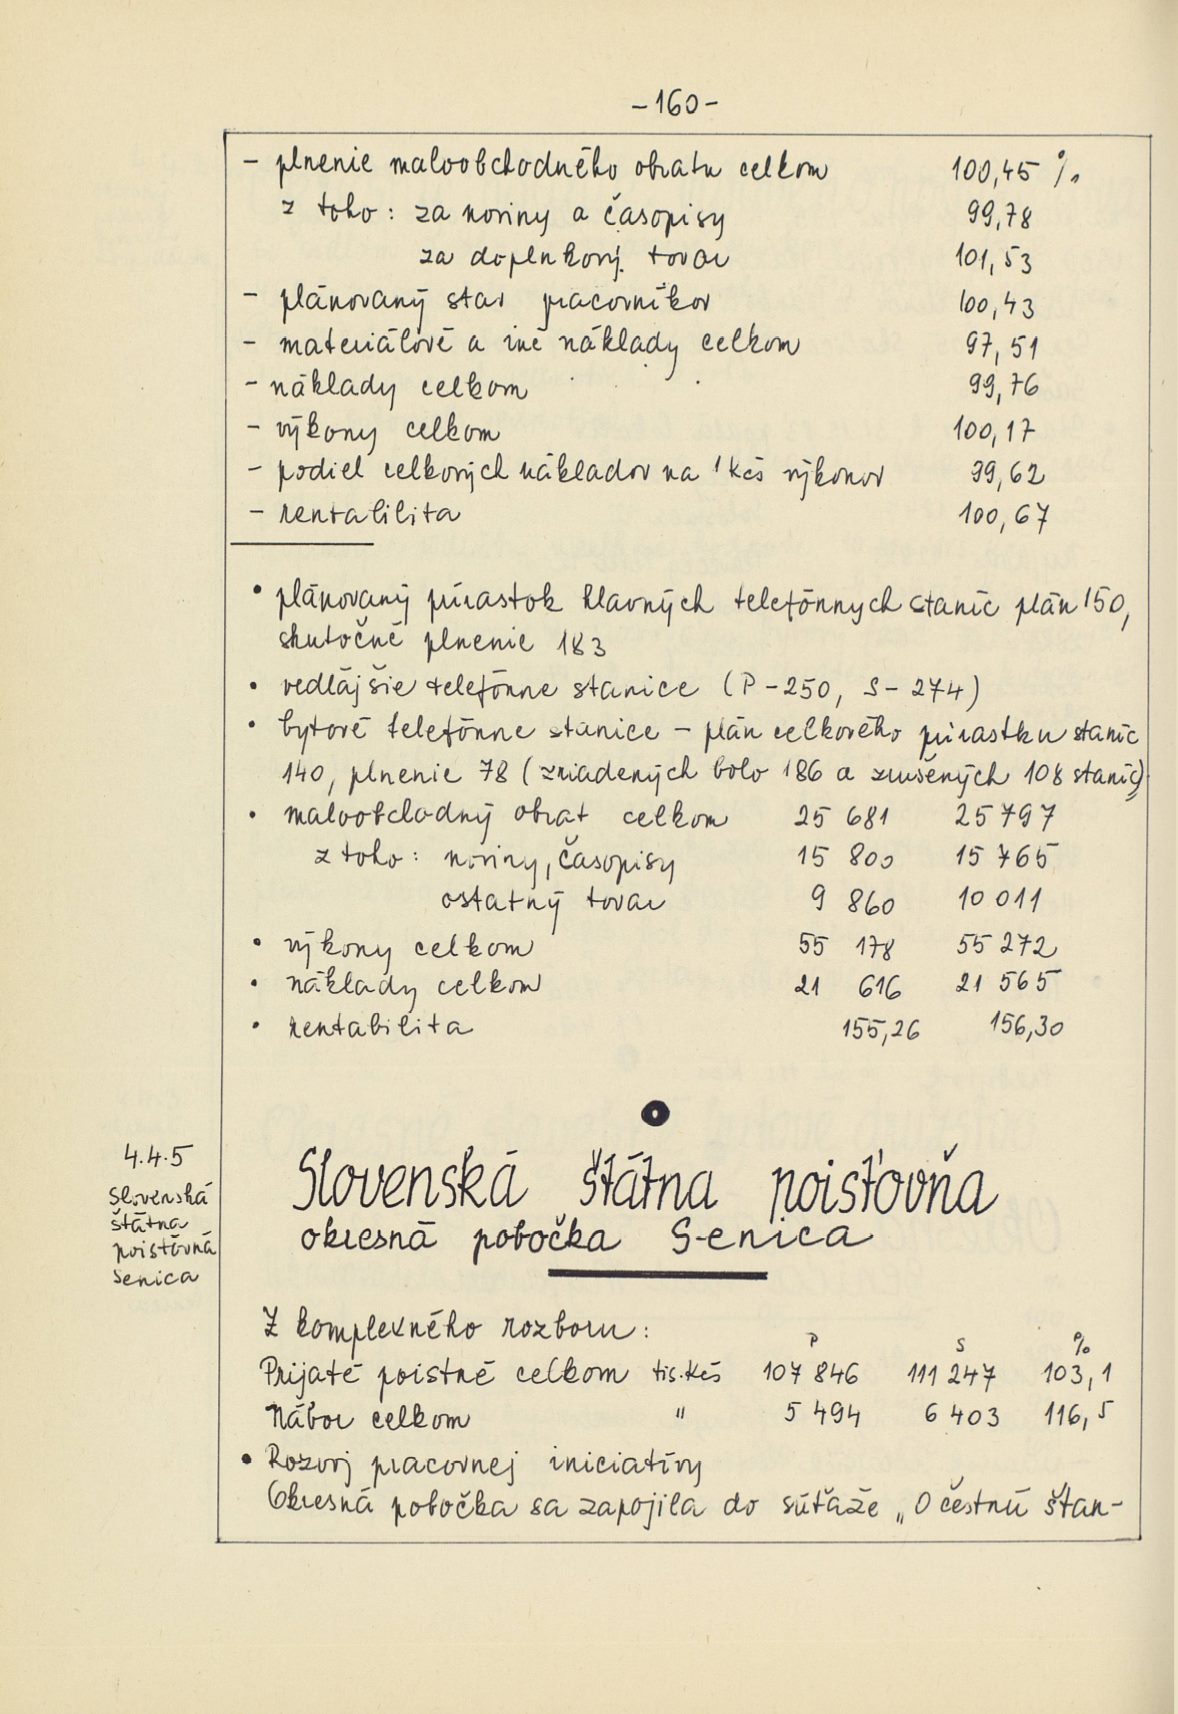 -160-
- plnenie maloobchodného obratu celkom 100,45 %
z toho: za noviny a časopisy 99,78
za doplnkový tovar 101,53
- plánovaný stav pracovníkov 100,43
- materiálové a iné náklady celkom 97,51
- náklady celkom 99,76
- výkony celkom 100,17
- podiel celkových nákladov na 1 Kčs výkonov 99,62
- rentabilita 100,67
• plánovaný prírastok hlavných telefónnych staníc plán 150,
skutočné plnenie 183
• vedlájšie telefónne stanice (P-250, S-274)
• bytové telefónne stanice - plán celkového prírastku staníc
140, plnenie 78 (zriadených bolo 186 a zrušených 108 staníc)
• maloobchodný obrat celkom 25 681 25 797
z toho: noviny, časopisy 15 800 15 765
ostatný tovar 9 860 10 011
• výkony celkom 55 178 55 272
• náklady celkom 21 616 21 565
• rentabilita 155,26 156,30
4.4.5
Slovenská
štátna
poistovná
Senica
Slovenská štátna poisťovňa
okresná pobočka Senica
Z komplexného rozboru:
P S %
Prijaté poistné celkom tis. Kčs 107 846 111 247 103,1
Nábor celkom " 5 494 6 403 116,5
• Rozvoj pracovnej iniciatívy
Okresná pobočka sa zapojila do súťaže „O čestnú štan-